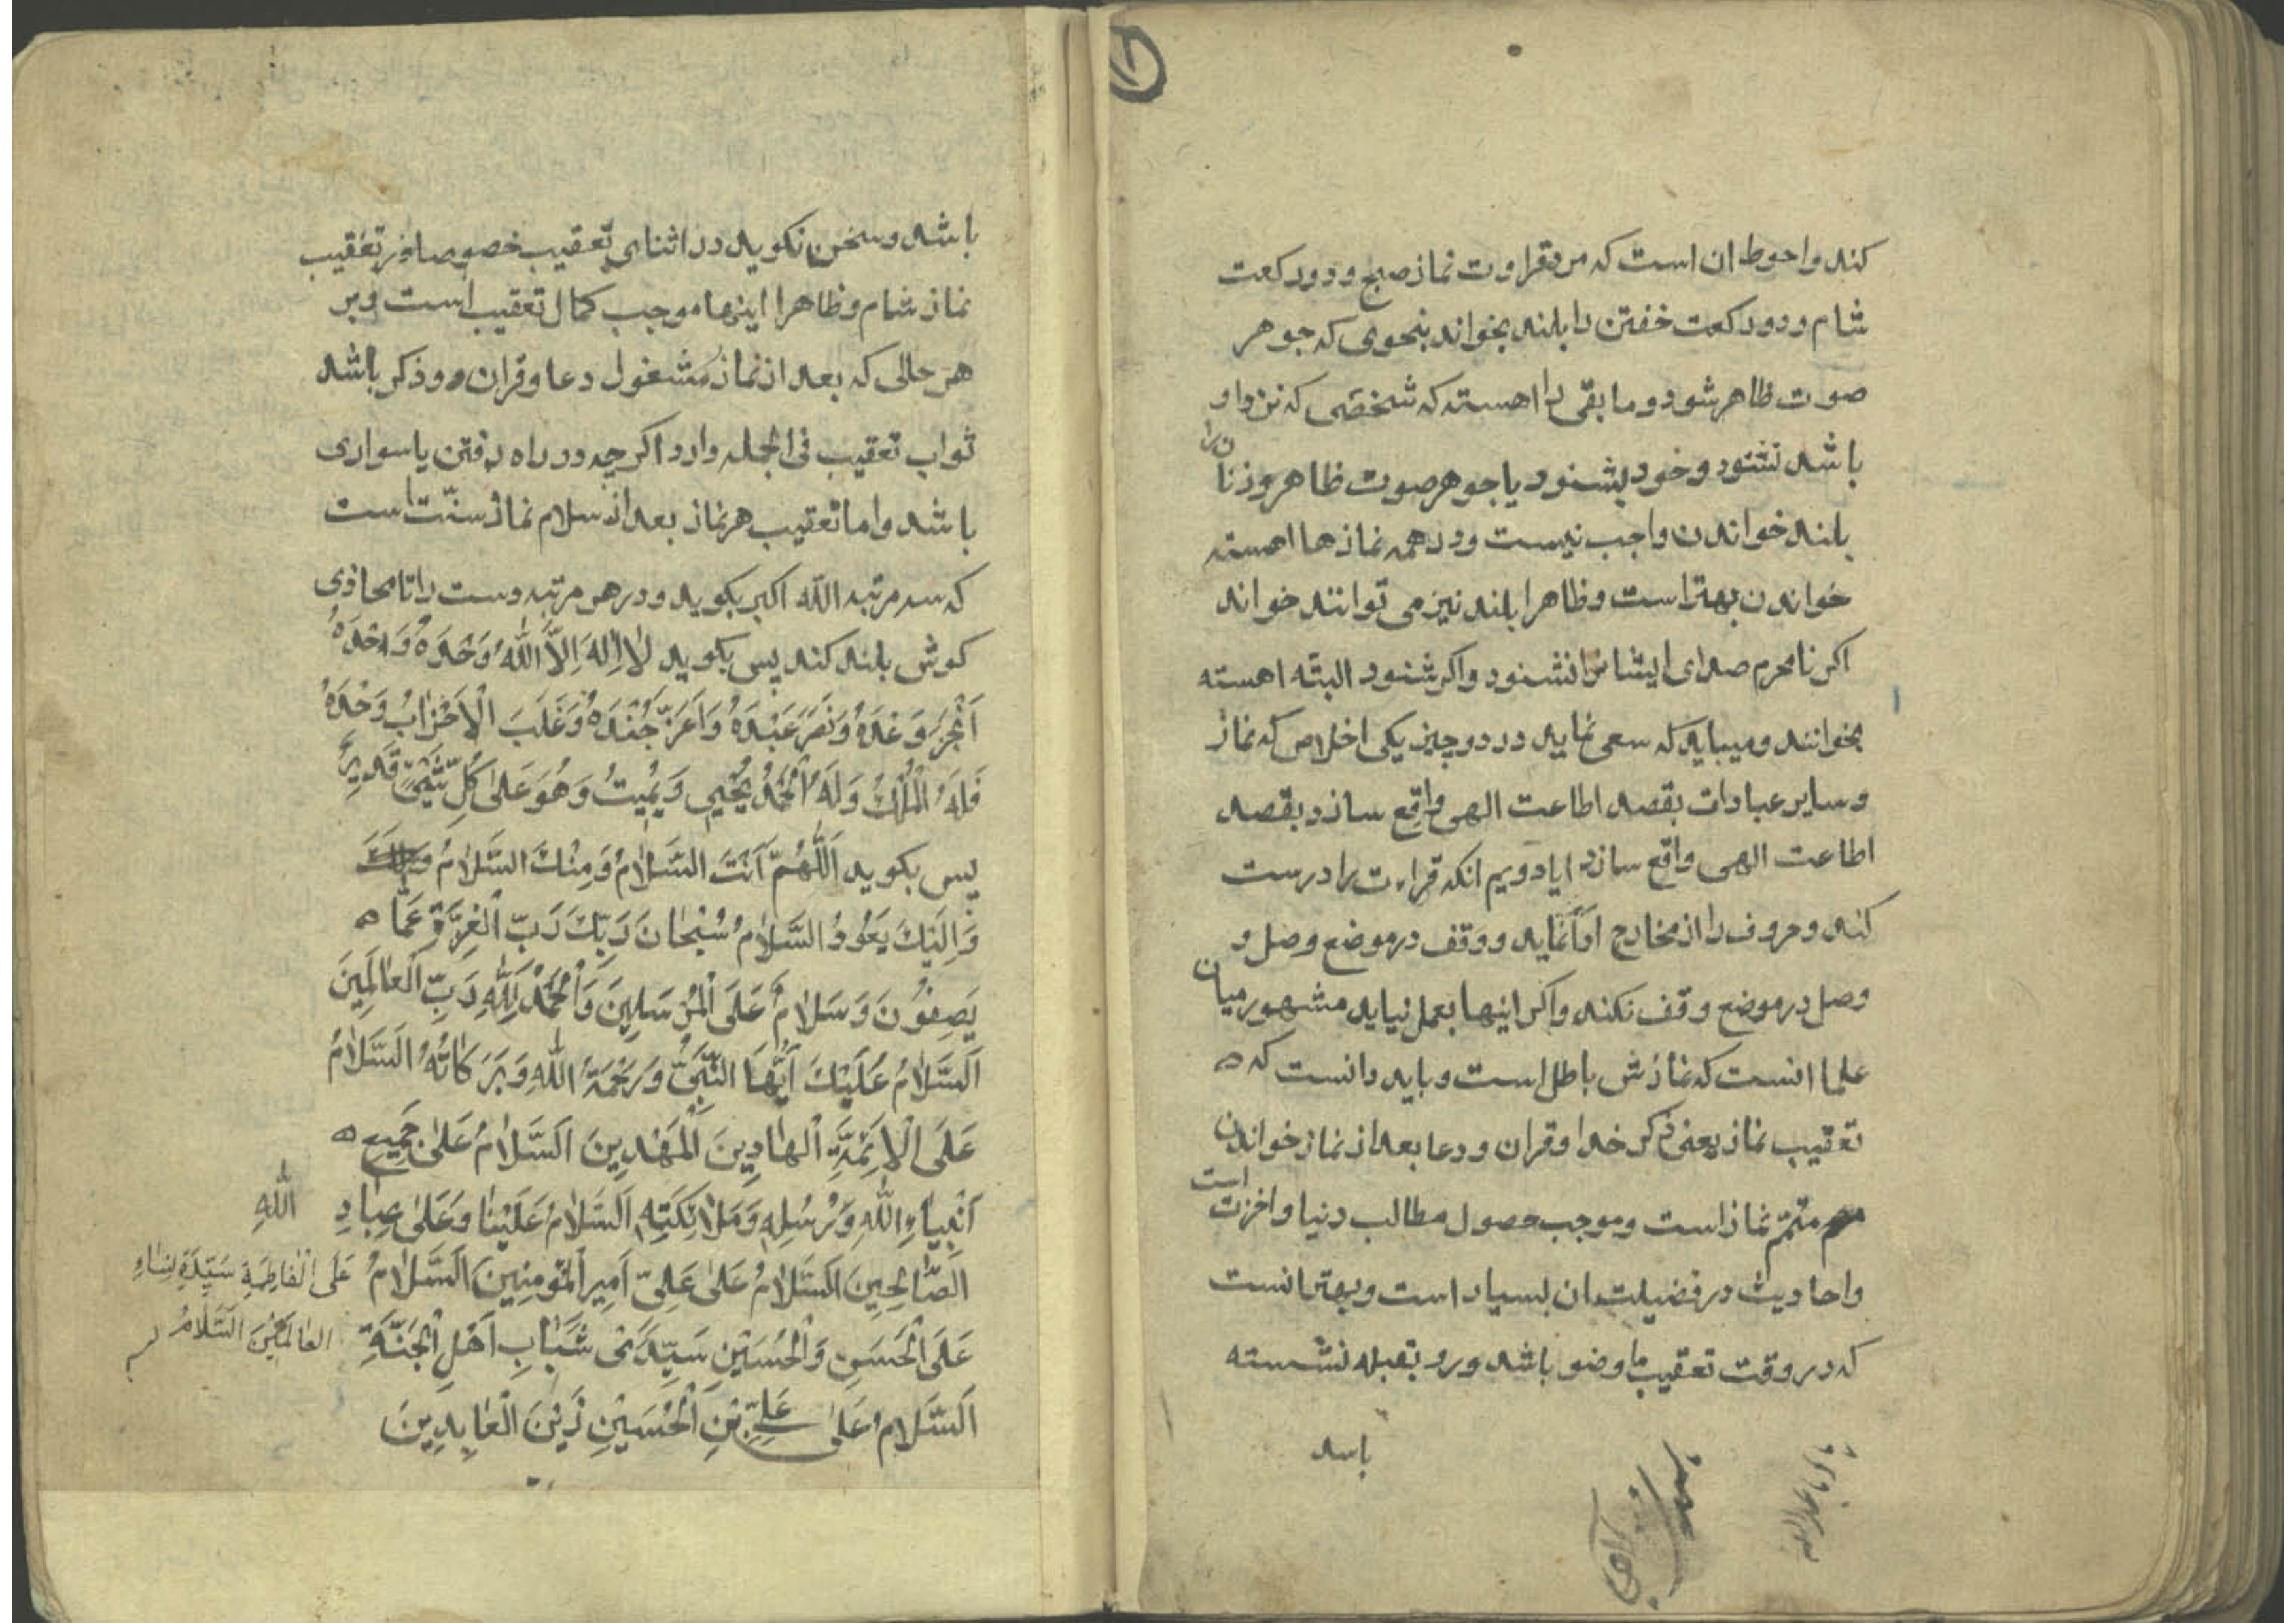 کند واحوط ان است که مرد قراوت نماز صبح و دو رکعت
شام و دو رکعت خفتن را بلند بخواند بنحوی که جوهر
صوت ظاهر شود و ما بقی را اهسته که شخصی که نزد او
باشد نشنود و خود بشنود یا جوهر صوت ظاهر و زنانرا
بلند خواندن واجب نیست و در همه نمازها اهسته
خواندن بهتر است و ظاهرا بلند نیز می توانند خواند
اکر نامحرم صدای ایشانرا نشنود و اکر شنود البته اهسته
بخوانند و میباید که سعی نماید در دو چیز یکی اخلاص که نماز
و سایر عبادات بقصد اطاعت الهی واقع سازد بقصد
اطاعت الهی واقع سازد دویم انکه قراءت را درست
کند و حروف را از مخارج ادا نماید و وقف در موضع وصل و
وصل در موضع وقف نکند و اکر اینها بعمل نیاید مشهور میان
علما انست که نمازش باطل است و باید دانست که
تعقیب نماز یعنی ذکر خدا و قران و دعا بعد از نماز خواندن
متمم نماز است و موجب حصول مطالب دنیا و اخرت است
و احادیث در فضیلت ان بسیار است و بهتر انست
که در وقت تعقیب با وضو باشد و رو بقبله نشسته
باشد
باشد و سخن نکوید در اثنای تعقیب خصوصا در تعقیب
نماز شام و ظاهرا اینها موجب کمال تعقیب است و بر
هر حالی که بعد از نماز مشغول دعا و قران و ذکر باشد
ثواب تعقیب فی الجمله دارد اکر چه در راه رفتن یا سواری
باشد و اما تعقیب هر نماز بعد از سلام نماز سنّت است
که سه مرتبه الله اکبر بکوید و در هر مرتبه دست را تا محاذی
کوش بلند کند پس بکوید لَا اِلٰهَ اِلَّا اللّٰهُ وَحْدَهُ وَحْدَهُ
اَنْجَزَ وَعْدَهُ وَنَصَرَ عَبْدَهُ وَاَعَزَّ جُنْدَهُ وَغَلَبَ الْاَحْزٰابَ وَحْدَهُ
فَلَهُ الْمُلْكُ وَلَهُ الْحَمْدُ يُحْيِي وَيُمِيتُ وَهُوَ عَلىٰ كُلِّ شَيْءٍ قَدِيرٌ
پس بکوید اَللّٰهُمَّ اَنْتَ السَّلٰامُ وَمِنْكَ السَّلٰامُ
وَاِلَيْكَ يَعُودُ السَّلٰامُ سُبْحٰانَ رَبِّكَ رَبِّ الْعِزَّةِ عَمّٰا
يَصِفُونَ وَسَلٰامٌ عَلَى الْمُرْسَلِينَ وَالْحَمْدُ لِلّٰهِ رَبِّ الْعٰالَمِينَ
اَلسَّلٰامُ عَلَيْكَ اَيُّهَا النَّبِيُّ وَرَحْمَةُ اللّٰهِ وَبَرَكٰاتُهُ اَلسَّلٰامُ
عَلَى الْاَئِمَّةِ الْهٰادِينَ الْمَهْدِينَ اَلسَّلٰامُ عَلىٰ جَمِيعِ
اَنْبِيٰاءِ اللّٰهِ وَرُسُلِهِ وَمَلٰائِكَتِهِ اَلسَّلٰامُ عَلَيْنٰا وَعَلىٰ عِبٰادِ اللّٰهِ
الصّٰالِحِينَ اَلسَّلٰامُ عَلىٰ عَلِيٍّ اَمِيرِ الْمُؤْمِنِينَ اَلسَّلٰامُ عَلَى الْفٰاطِمَةِ سَيِّدَةِ نِسٰاءِ
الْعٰالَمِينَ اَلسَّلٰامُ
عَلَى الْحَسَنِ وَالْحُسَيْنِ سَيِّدَيْ شَبٰابِ اَهْلِ الْجَنَّةِ
اَلسَّلٰامُ عَلىٰ عَلِيِّ بْنِ الْحُسَيْنِ زَيْنِ الْعٰابِدِينَ